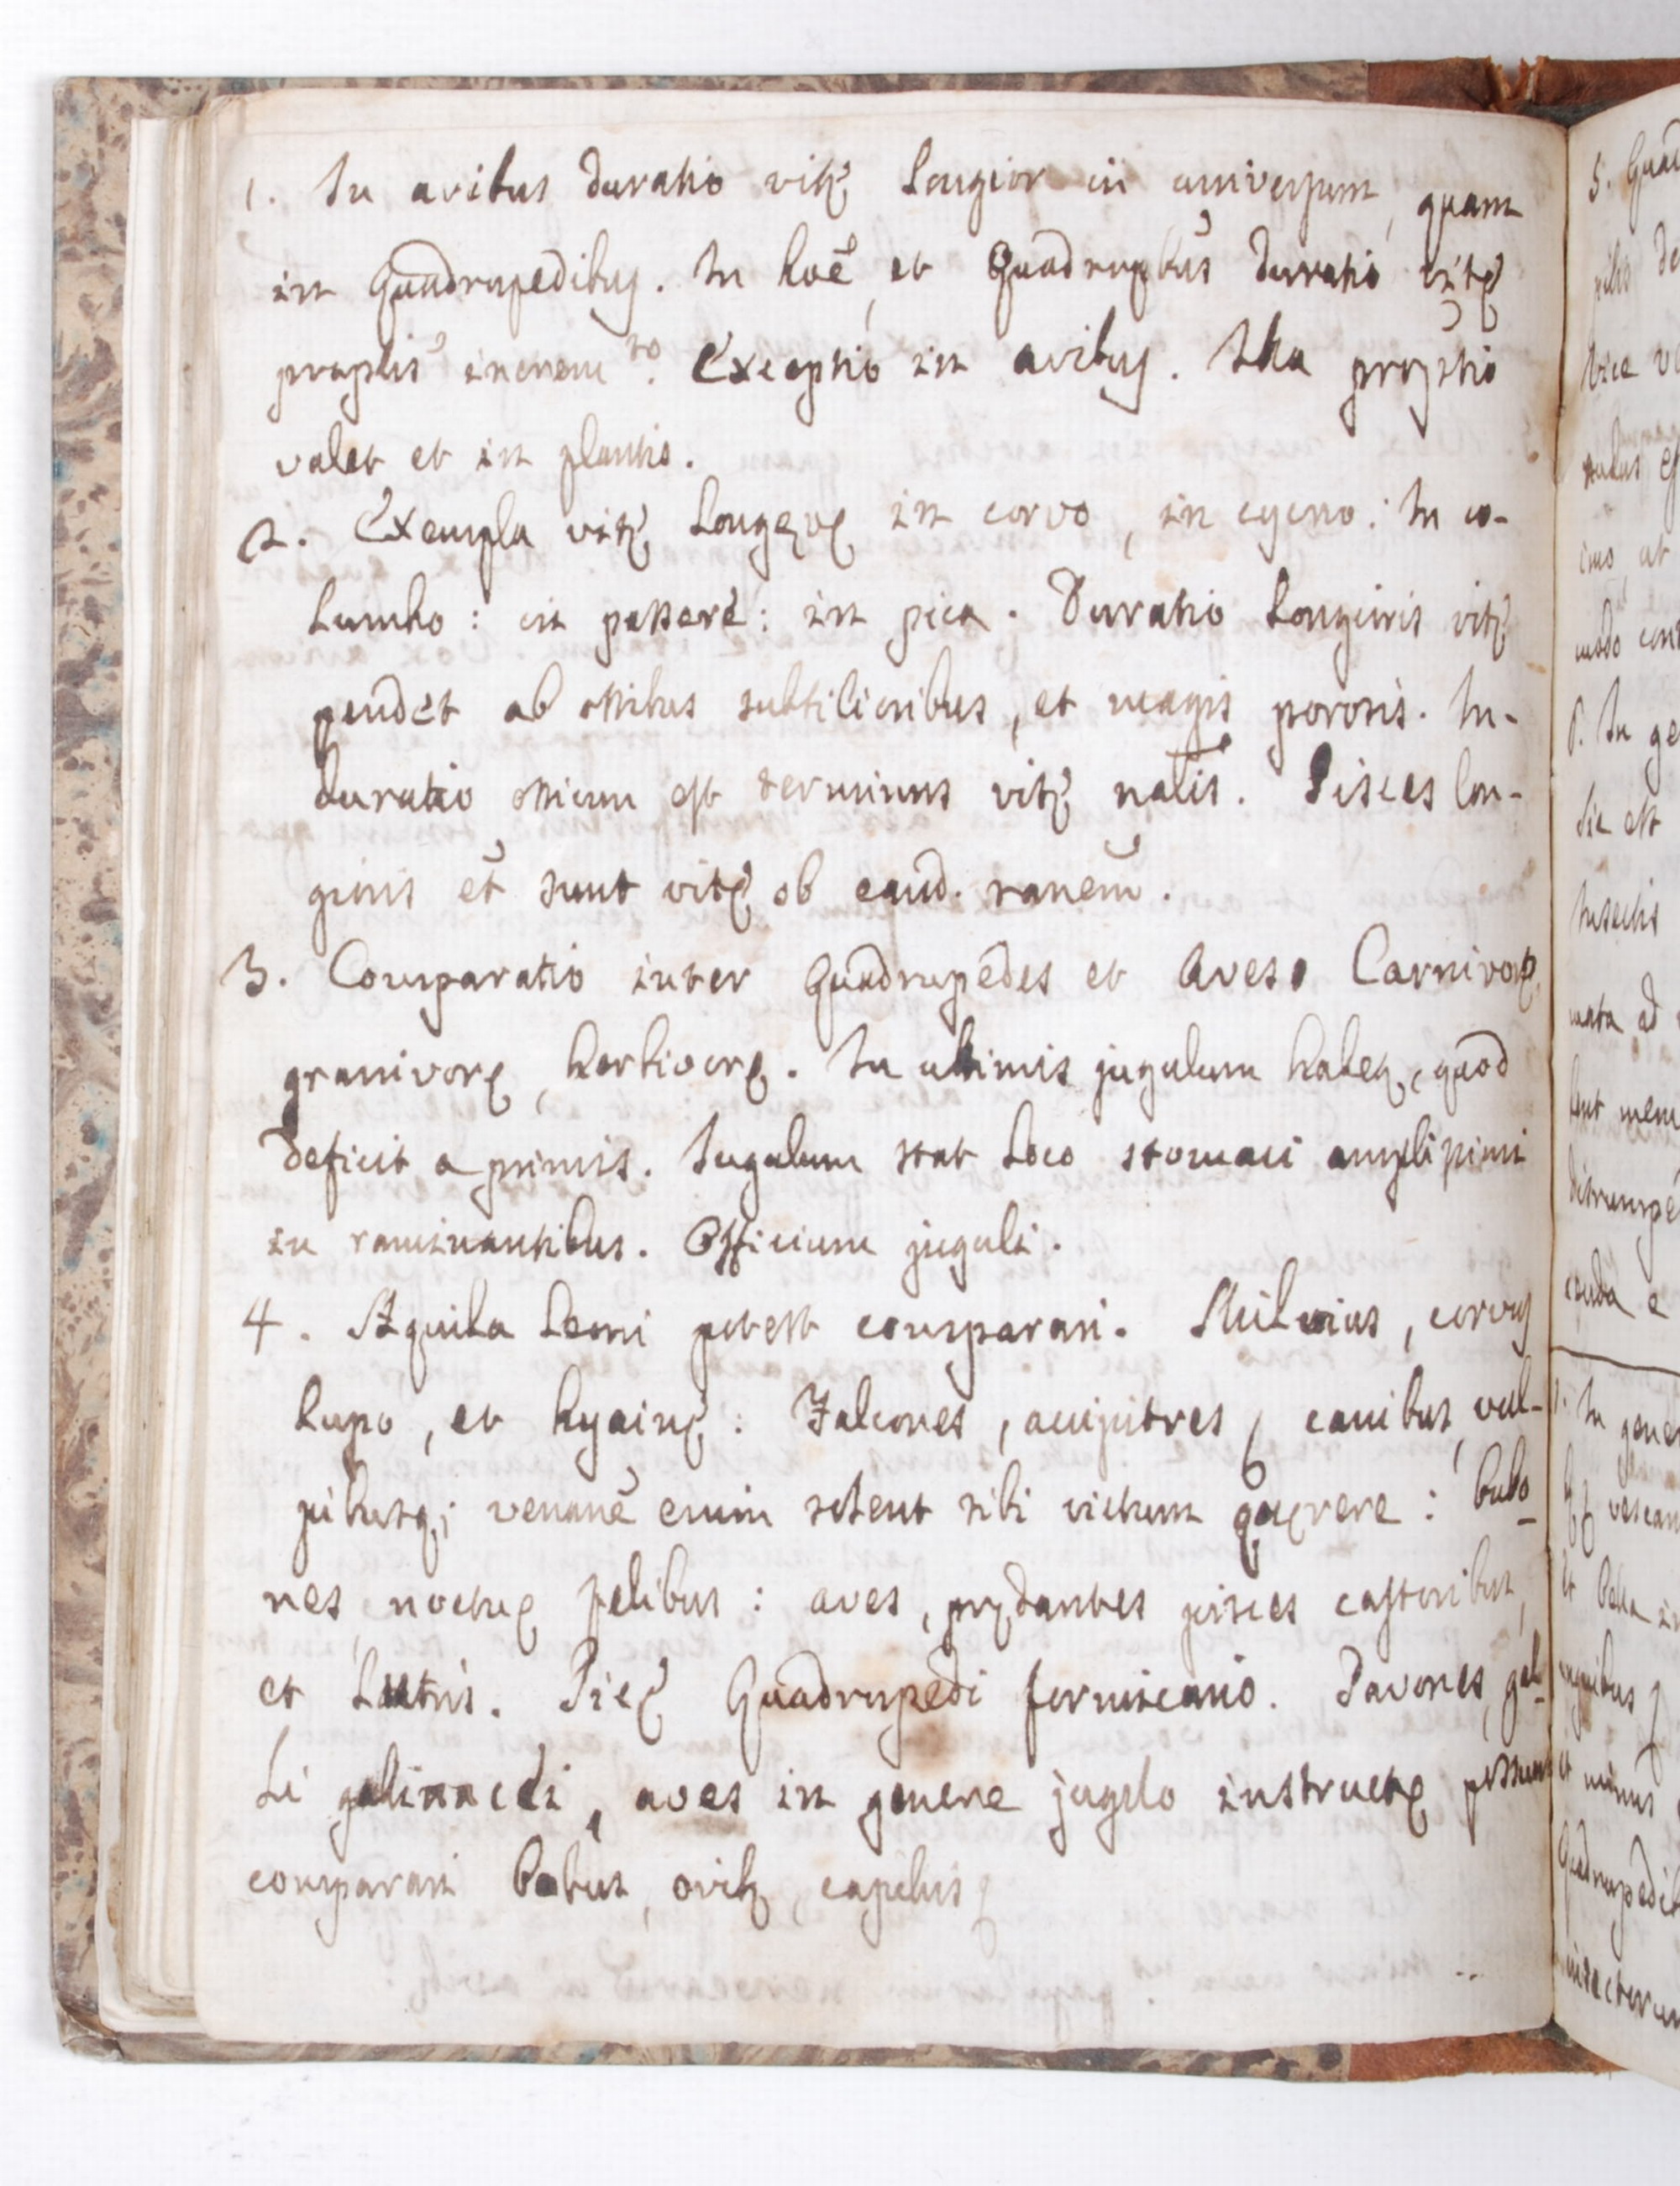 1. In avibus duratio vitę longior in universum, quam
in Quadrupedibus. In hoē, et Quadrupbus duratio vitę
increm to. Exceptio in avibus. Ita
valet et in plantis.
2. Exempla vitę longęvę in corvo, in cygno: In co-
lumbo: in passere: in pica. Duratio longioris vitę
pendet ab ossibus subtilioribus, et magis porosis. In-
duratio ossium est terminus vitę nalis. Pisces lon-
gioris et sunt vitę ob eamd. ranem.
3. Comparatio inter Quadrupedes et Aves. Carnivorę,
granivorę, herbivorę. In ultimis jugulum habeꝫ, quod
deficit a primis. Jugulum stat loco stomaci amplissimi
in ruminantibus. Officium juguli.
4. Aquila Leoni potest comparari. Milvius, corvus
Lupo, et hyainę: Falcones, accipitres, canibus, vul-
pibusq; venane enim solent sibi victum quęrere: bubo-
nes, noctuę felibus: aves, prędantes pisces castoribus,
et Lutris. Picę Quadrupedi formicario. Pavones, gal-
li gallinacei, aves in genere jugulo instructę possunt
comparari bobus, ovibꝫ, capribus
5. Quad